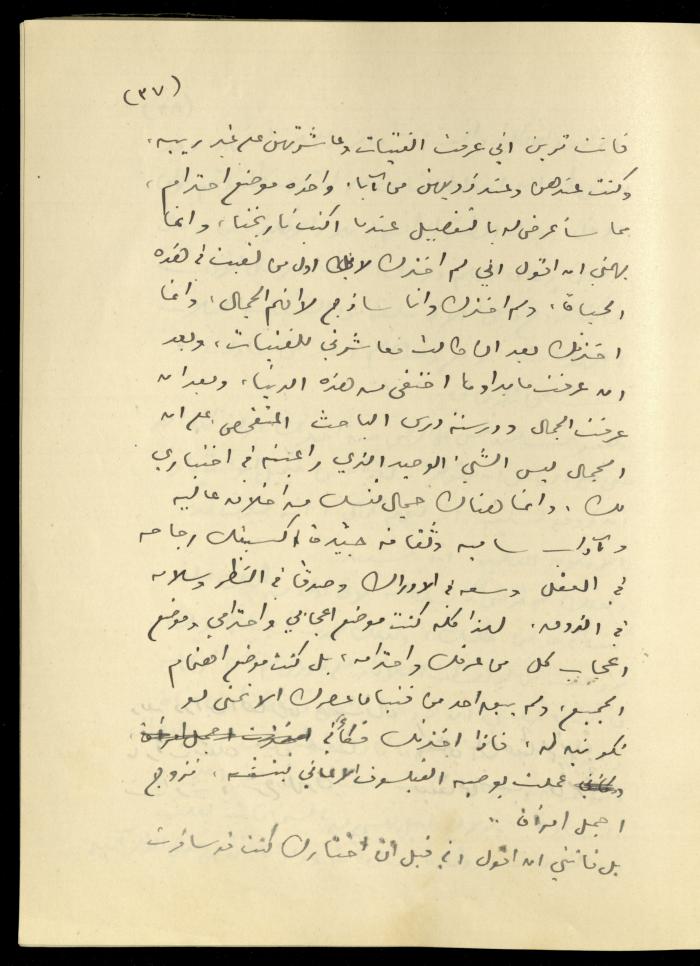 (٣٧)
فأنت ترين اني عرفت الفتيات وعاشرتهن على غير ريبه،
وكنت عندهن وعند ذويهن من آباء واخوه موضع احترام،
مما سأعرض له بالتفصيل عندما اكتب تاريخنا، وانما
يهمني ان اقول اني لم اخترك لانك اول من لقيت في هذه
الحياة، ولم اخترك وانا ساذج لا افهم الجمال، وانما
اخترتك بعد ان طالت معاشرتي للفتيات، وبعد
ان عرفت ما بدا وما اختفى من هذه الدنيا، وبعد ان
عرفت الجمال ودرسته درس الباحث المتفحص، على ان
الجمال ليس الشيء الوحيد الذي راعيته في اختياري
لك، وانما هناك جمال نفسك من اخلاق عاليه
وآداب ساميه وثقافه جيّدة اكسبتك رجاحه
في العقل وسعه في الادراك وصدقا في النظر وسلامه
في الذوق، لهذا كله كنت موضع اعجابي واحترامي وموضع
اعجاب كل من عرفك واحترامه، بل كنت موضع اهتمام
الجميع، ولم يبق احد من فتيان عصرك الا تمنى لو
تكونين له، فاذا اخترتك فكأني اخترت اجمل امرأة
وكأني عملت بوصيه الفيلسوف الالماني بنفسه، تزوج
اجمل امرأة ..
بل فاتني ان اقول اني قبل ان اختارك كنت قد سافرت